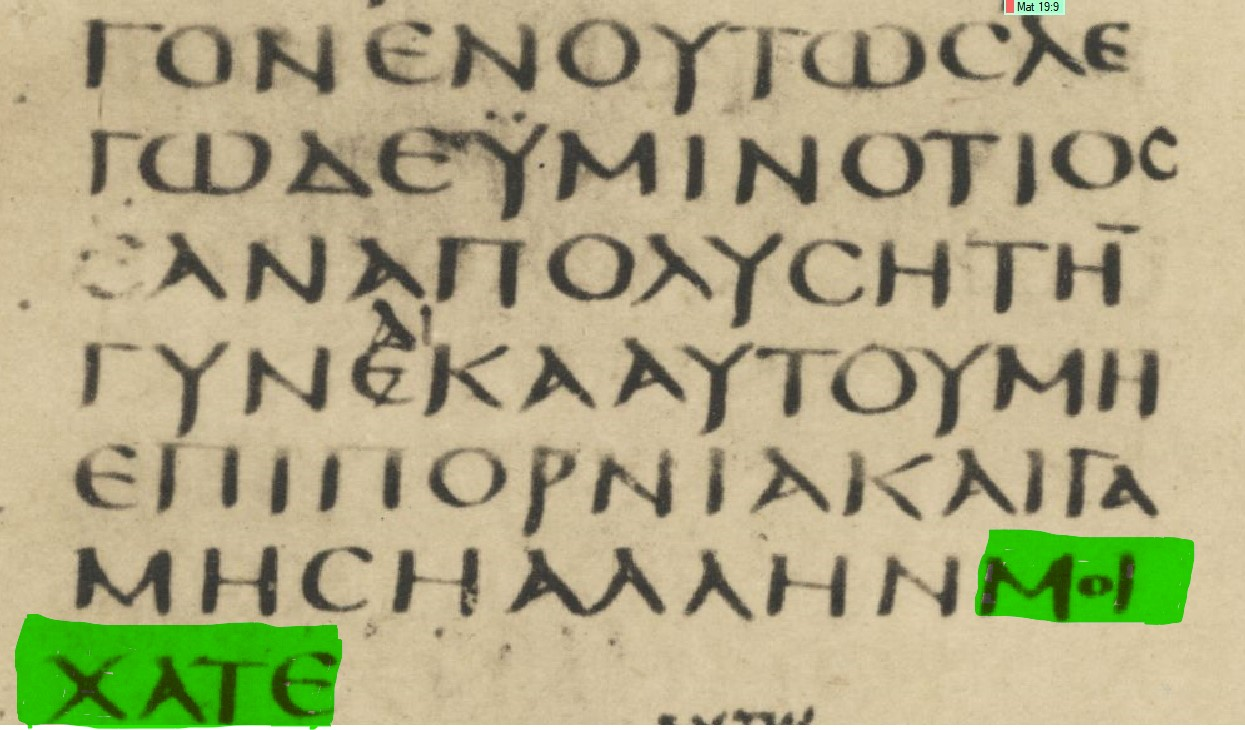 Mat 19:9
ΓΟΝΕΝΟΥΤΩϹΛΕ
ΓΩΔΕΫΜΙΝΟΤΙΟϹ
ΕΑΝΑΠΟΛΥϹΗΤΗ̅
ΑΙ
ΓΥΝΕΚΑΑΥΤΟΥΜΗ
ΕΠΙΠΟΡΝΙΑΚΑΙΓΑ
ΜΗϹΗΑΛΛΗΝΜΟΙ
ΧΑΤΕ